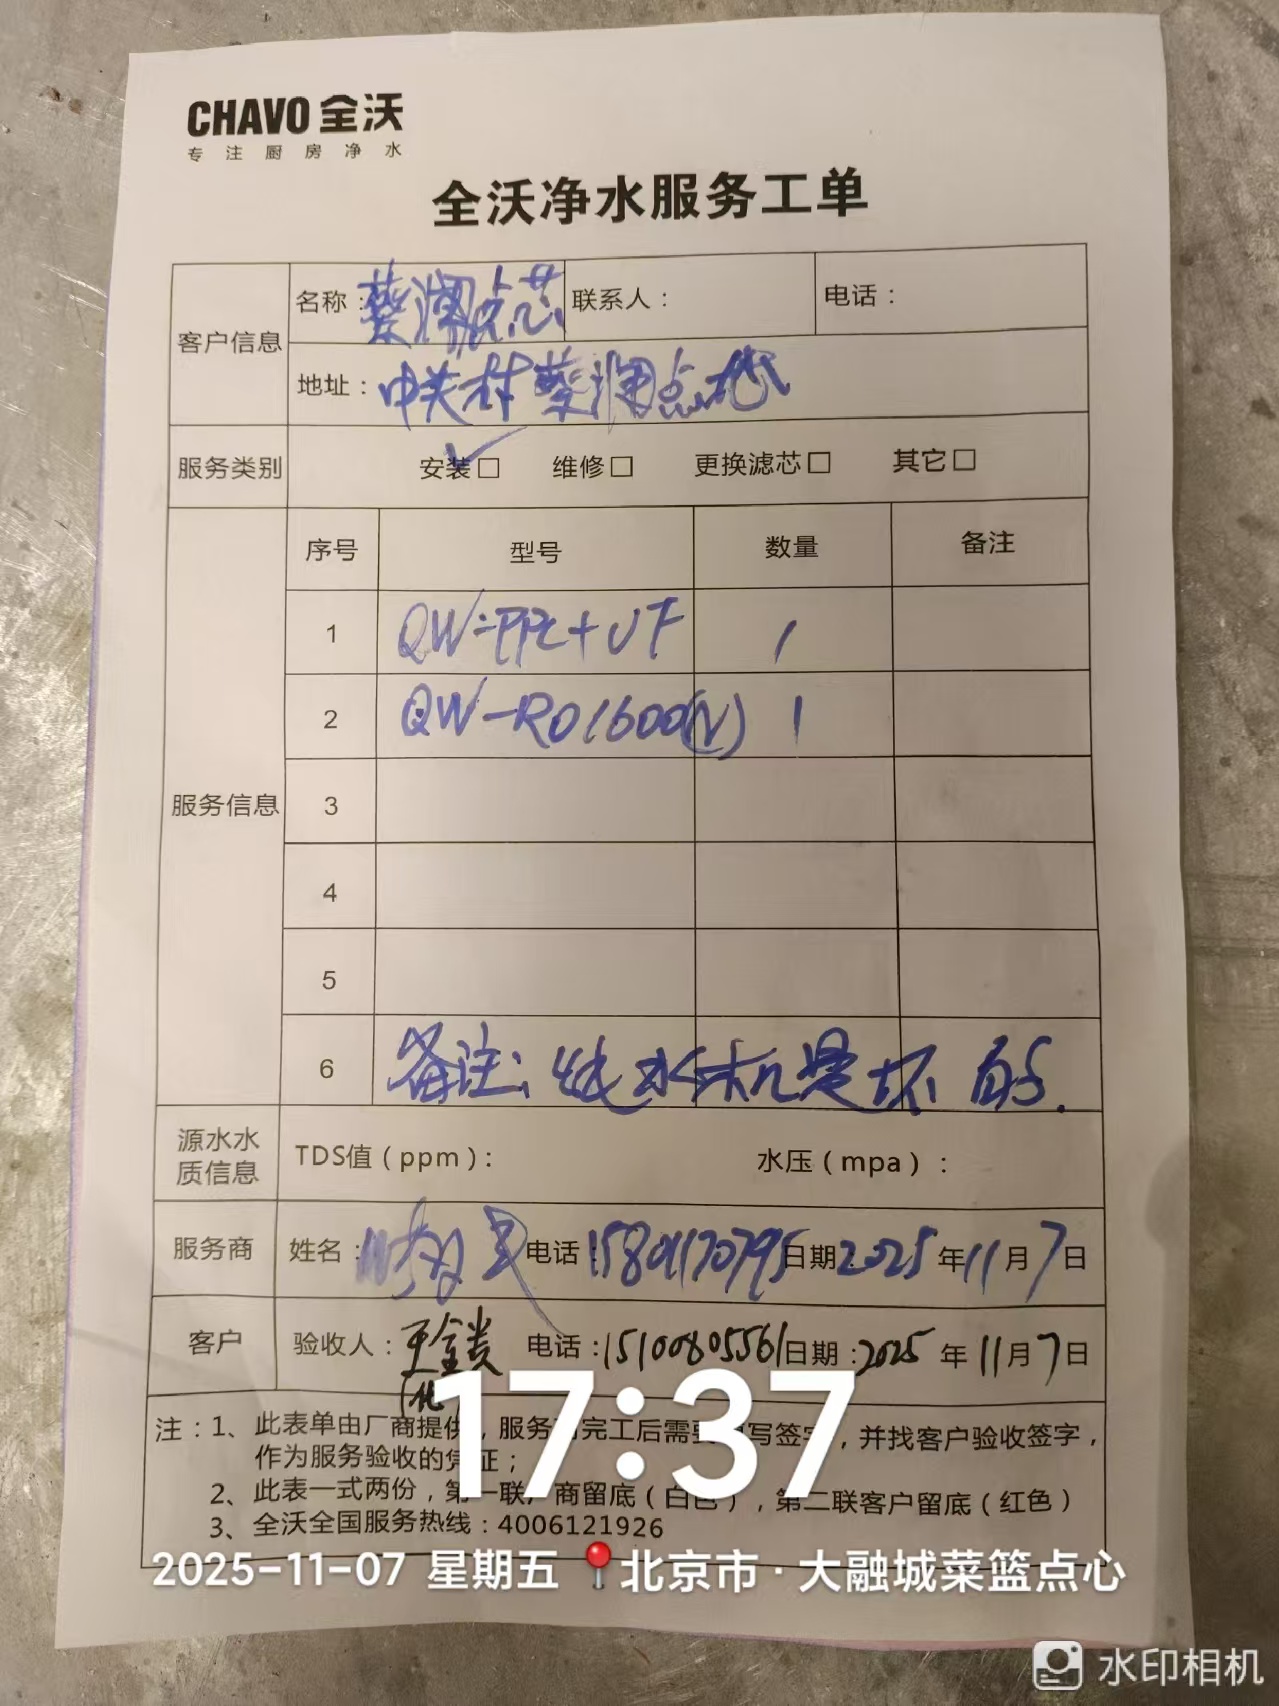 CHAVO 全沃
专注厨房净水
全沃净水服务工单
客户信息
名称：蔡澜点芯
联系人：
电话：
地址：中关村蔡澜点心
服务类别
安装□ 维修□ 更换滤芯□ 其它□
序号 型号 数量 备注
服务信息
1 QW-PPC+UF 1
2 QW-RO1600(N) 1
3
4
5
6 备注：纯水机是坏的.
源水水质信息
TDS值（ppm）：
水压（mpa）：
服务商
姓名：
电话：15801170795
日期：2025年11月7日
客户
验收人：
电话：15100805561
日期：2025年11月7日
17:37
注：1、此表单由厂商提供，服务 完工后需要 写签字，并找客户验收签字，
作为服务验收的凭证；
2、此表一式两份，第一联厂商留底（白色），第二联客户留底（红色）
3、全沃全国服务热线：4006121926
2025-11-07 星期五 北京市·大融城菜篮点心
水印相机